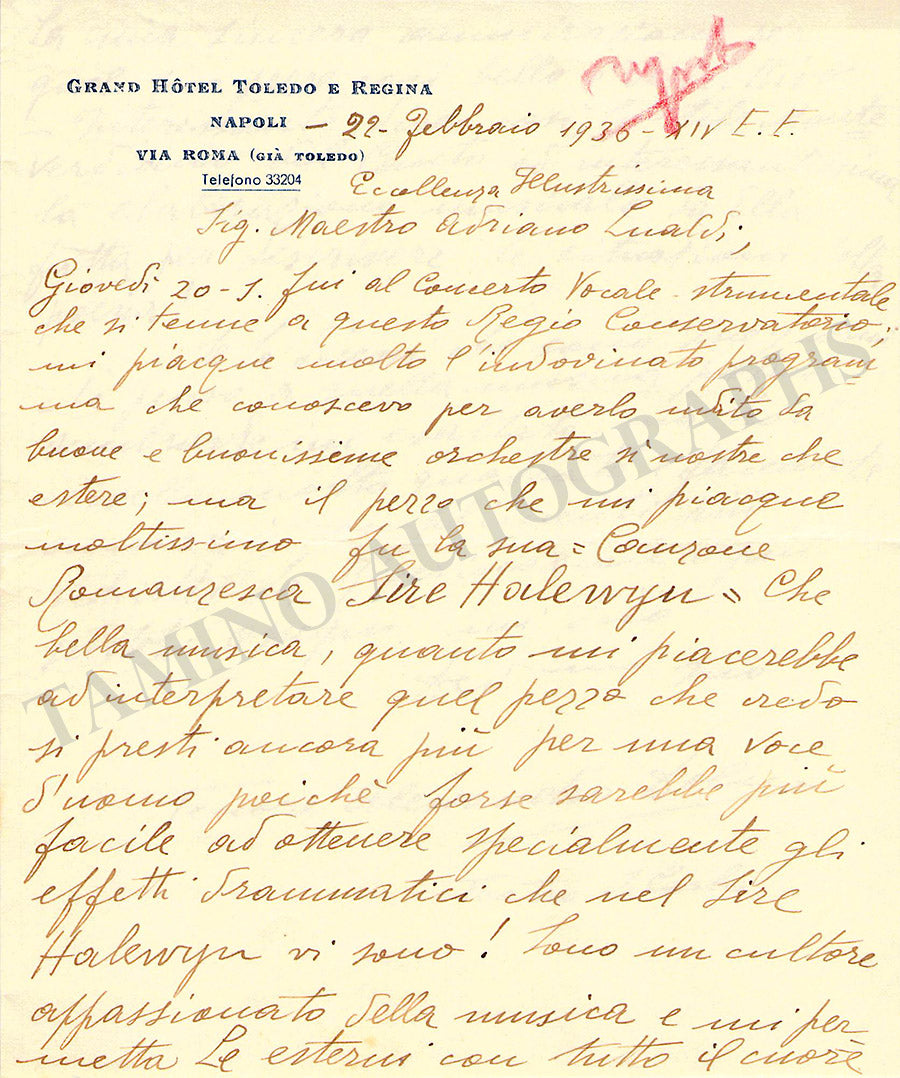 GRAND HÔTEL TOLEDO E REGINA
NAPOLI – 22 - Febbraio 1936 - XIV E. F.
VIA ROMA (GIÀ TOLEDO)
Telefono 33204
Eccellenza Illustrissima
Sig. Maestro Adriano Lualdi,
Giovedì 20 - s. fui al Concerto Vocale - strumentale
che si tenne a questo Regio Conservatorio;
mi piacque molto l'indovinato program
ma che conoscevo per averlo udito da
buone e buonissime orchestre sì nostre che
estere; ma il pezzo che mi piacque
moltissimo fu la sua = Canzone
Romanzesca Sire Halewyn = Che
bella musica, quanto mi piacerebbe
ad interpretare quel pezzo che credo
si presti ancora più per una voce
d'uomo poichè forse sarebbe più
facile ad ottenere specialmente gli
effetti drammatici che nel Sire
Halewyn vi sono! Sono un cultore
appassionato della musica e mi per
metta Le esterni con tutto il cuore
TAMINO AUTOGRAPHS